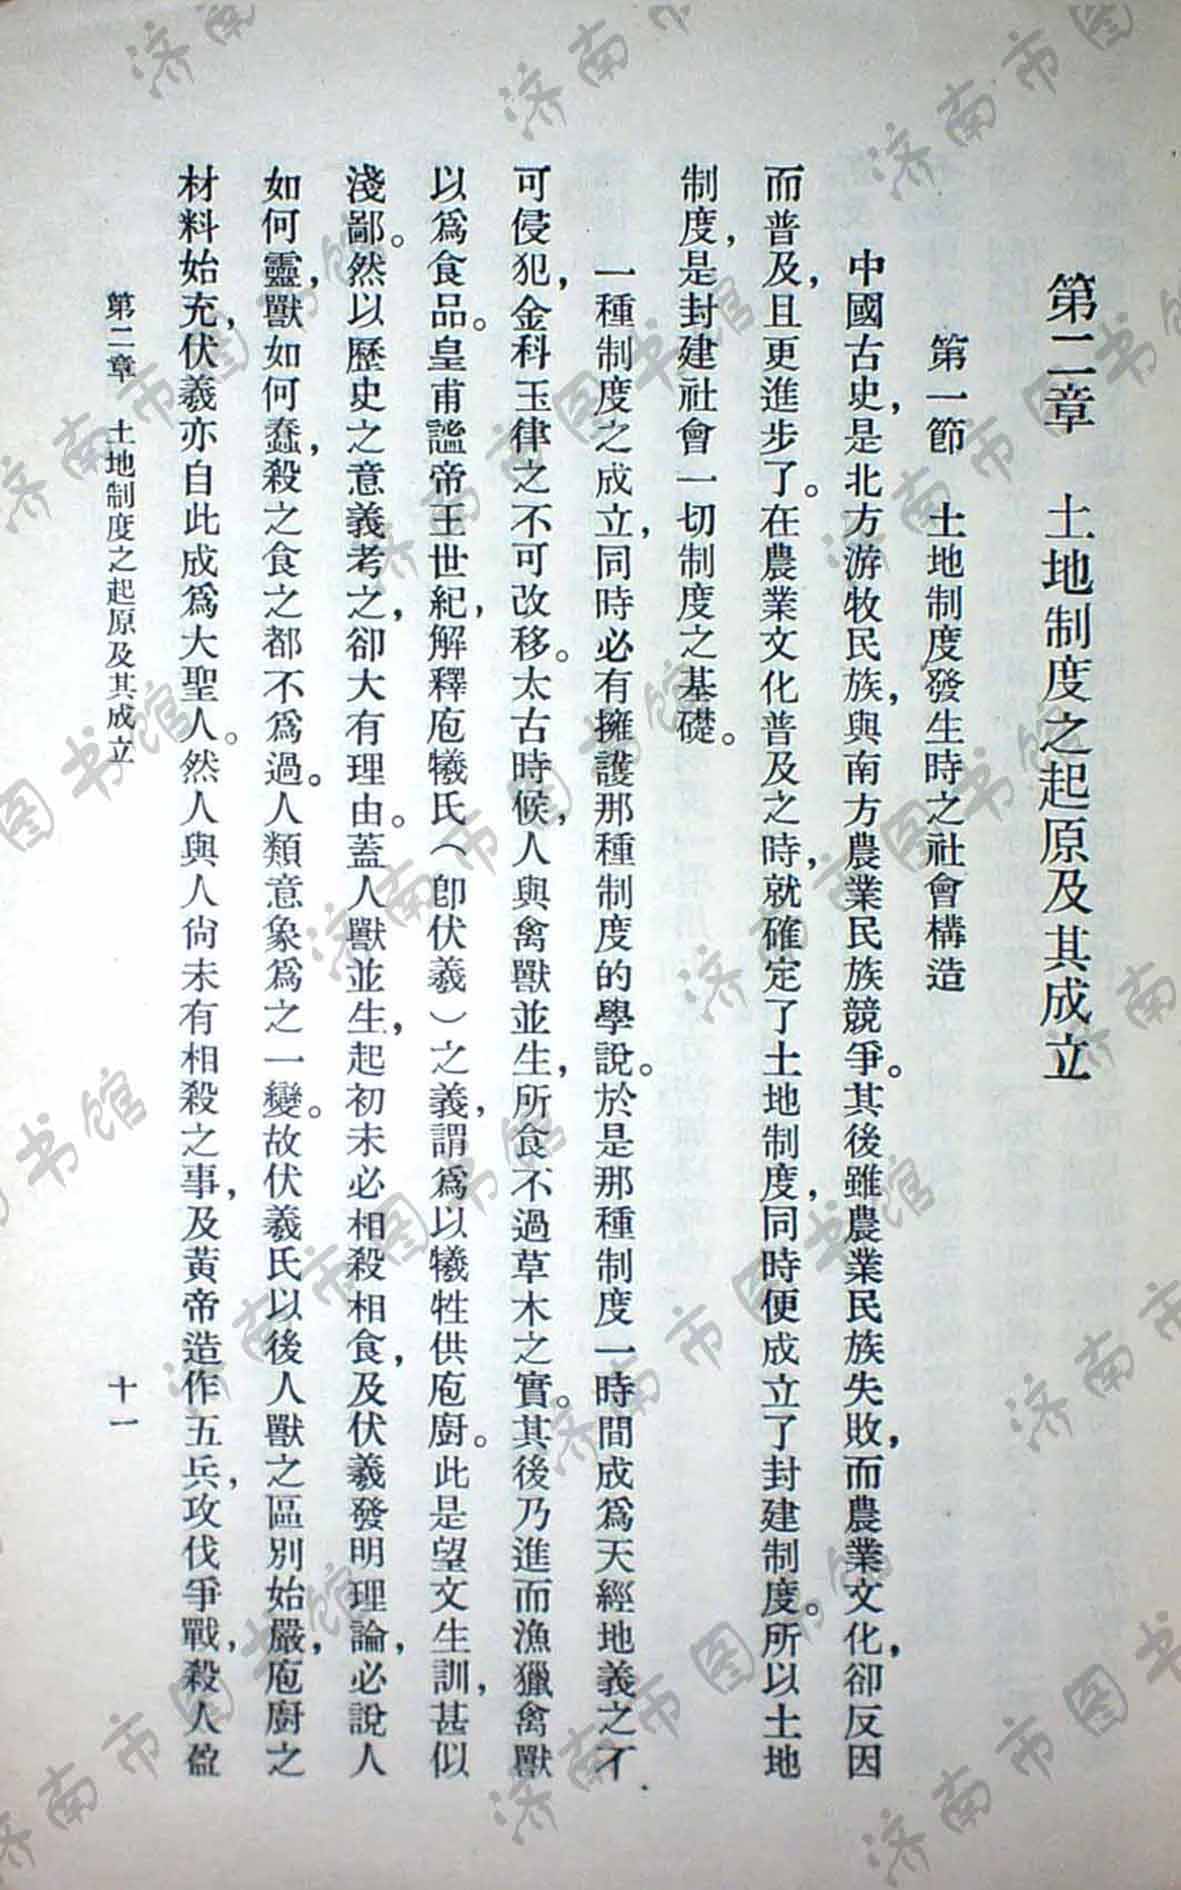 第二章　土地制度之起原及其成立
第一節　土地制度發生時之社會構造
中國古史，是北方游牧民族，與南方農業民族競爭。其後雖農業民族失敗，而農業文化，卻反因
而普及，且更進步了。在農業文化普及之時，就確定了土地制度，同時便成立了封建制度。所以土地
制度，是封建社會一切制度之基礎。
一種制度之成立，同時必有擁護那種制度的學說。於是那種制度一時間成爲天經地義之不
可侵犯，金科玉律之不可改移。太古時候，人與禽獸並生，所食不過草木之實。其後乃進而漁獵禽獸
以爲食品。皇甫謐帝王世紀，解釋庖犧氏（卽伏羲）之義，謂爲以犧牲供庖廚。此是望文生訓，甚似
淺鄙。然以歷史之意義考之，卻大有理由。蓋人獸並生，起初未必相殺相食，及伏羲發明理論，必說人
如何靈，獸如何蠢，殺之食之都不爲過。人類意象爲之一變。故伏羲氏以後人獸之區別始嚴，庖廚之
材料始充，伏羲亦自此成爲大聖人。然人與人尙未有相殺之事，及黃帝造作五兵，攻伐爭戰，殺人盈
第二章　土地制度之起原及其成立
十一
济南市图书馆